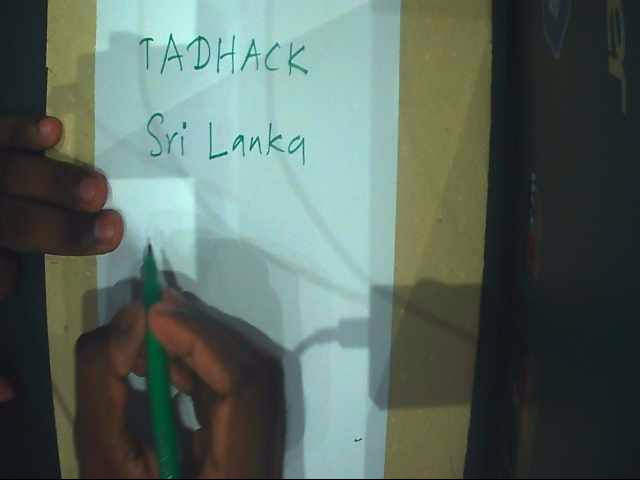 TADHACK
Sri Lanka